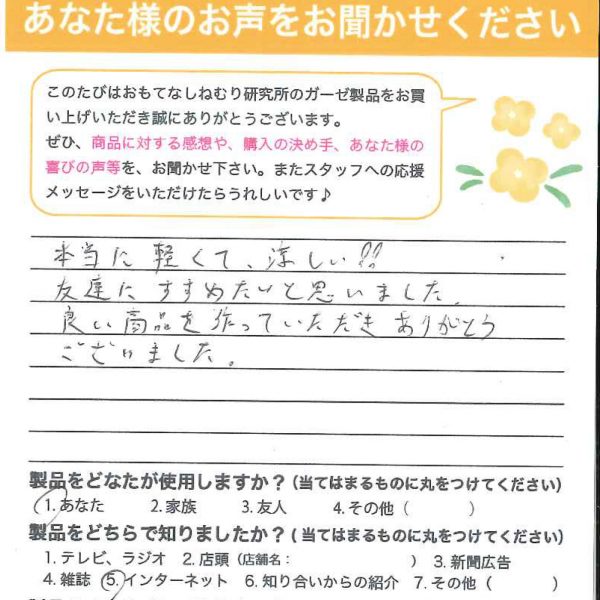 あなた様のお声をお聞かせください
このたびはおもてなしねむり研究所のガーゼ製品をお買
い上げいただき誠にありがとうございます。
ぜひ、商品に対する感想や、購入の決め手、あなた様の
喜びの声等を、お聞かせ下さい。またスタッフへの応援
メッセージをいただけたらうれしいです♪
本当に軽くて、涼しい!!
友達にすすめたいと思いました。
良い商品を作っていただきありがとう
ございました。
製品をどなたが使用しますか？(当てはまるものに丸をつけてください)
1.あなた 2.家族 3.友人 4.その他（ ）
製品をどちらで知りましたか？(当てはまるものに丸をつけてください)
1.テレビ、ラジオ 2.店頭（店舗名： ） 3.新聞広告
4.雑誌 5.インターネット 6.知り合いからの紹介 7.その他（ ）